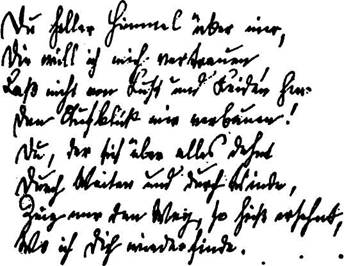 Du heller Himmel über mir,
Dir will ich mich vertrauen,
Laß nicht von Lust und Leiden hier
Den Aufblick mir verbauen!
Du, der sich über alles dehnt
Durch Weiten und durch Winde,
Zeig mir den Weg, so heiß ersehnt,
Wo ich Dich wiederfinde. . . .